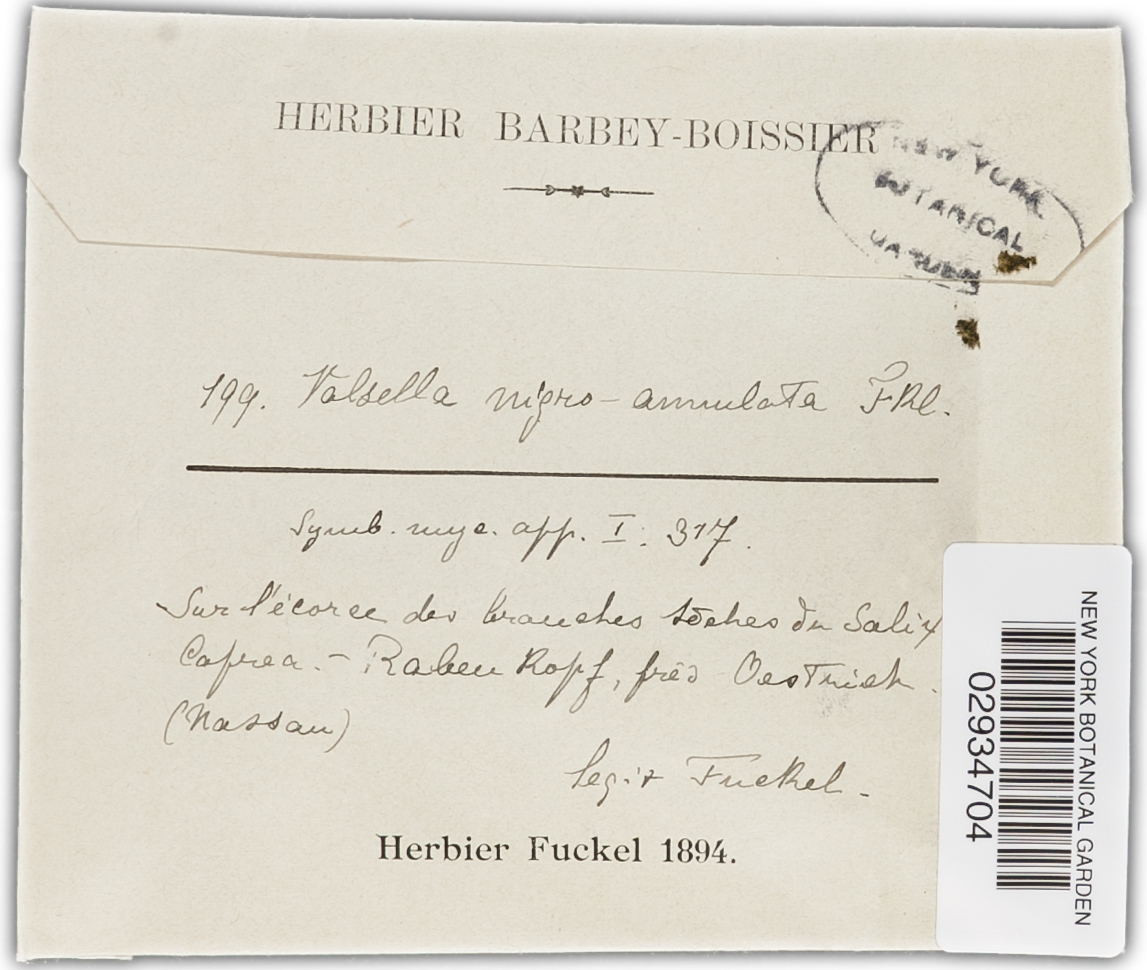 HERBIER BARBEY-BOISSIER
NEW YORK
BOTANICAL
GARDEN
199. Valsella nigro-annulata Fkl.
Symb. myc. app. I. 317.
Sur l'écorce des branches sèches du Salix
Caprea. - Rabenkopf, près Oestrich.
(Nassau)
legit Fuckel.
Herbier Fuckel 1894.
NEW YORK BOTANICAL GARDEN
02934704